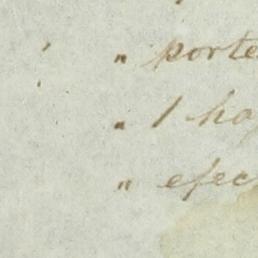 " porte
" 1 ha
" efec